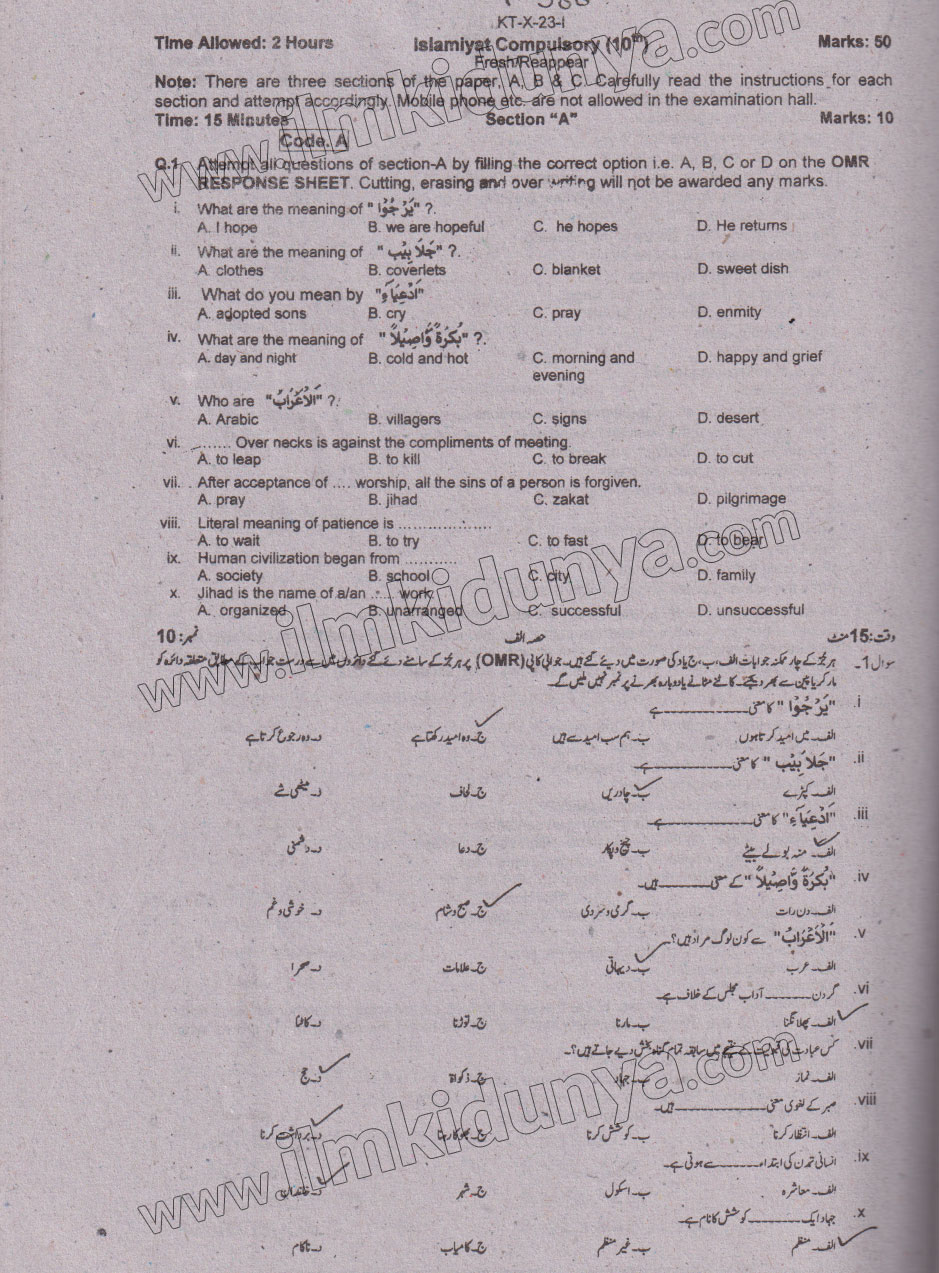 KT-X-23-I
Time Allowed: 2 Hours Islamiyat Compulsory (10th) Marks: 50
Fresh/Reappear
Note: There are three sections of the paper, A, B & C. Carefully read the instructions for each
section and attempt accordingly. Mobile phone etc. are not allowed in the examination hall.
Time: 15 Minutes Section "A" Marks: 10
Code. A
Q.1 Attempt all questions of section-A by filling the correct option i.e. A, B, C or D on the OMR
RESPONSE SHEET. Cutting, erasing and over writing will not be awarded any marks.
i. What are the meaning of "يَرْجُوْا" ?.
A. I hope B. we are hopeful C. he hopes D. He returns
ii. What are the meaning of "جَلَابِيْب" ?.
A. clothes B. coverlets C. blanket D. sweet dish
iii. What do you mean by "اَدْعِيَآءَ"
A. adopted sons B. cry C. pray D. enmity
iv. What are the meaning of "بُكْرَةً وَّاَصِيْلًا" ?.
A. day and night B. cold and hot C. morning and evening D. happy and grief
v. Who are "اَلْاَعْرَابُ" ?.
A. Arabic B. villagers C. signs D. desert
vi. ........ Over necks is against the compliments of meeting.
A. to leap B. to kill C. to break D. to cut
vii. After acceptance of .... worship, all the sins of a person is forgiven.
A. pray B. jihad C. zakat D. pilgrimage
viii. Literal meaning of patience is .....................
A. to wait B. to try C. to fast D. to bear
ix. Human civilization began from ...........
A. society B. school C. city D. family
x. Jihad is the name of a/an ...... work.
A. organized B. unarranged C. successful D. unsuccessful
وقت: 15 منٹ حصہ الف نمبر: 10
سوال 1۔ ہر جُز کے چار ممکنہ جوابات الف، ب، ج یا د کی صورت میں دیے گئے ہیں۔ جوابی کاپی (OMR) پر ہر جُز کے سامنے دیے گئے دائروں میں سے درست جواب کے مطابق متعلقہ دائرہ کو
مارکر یا پین سے بھر دیجئے۔ کاٹنے مٹانے یا دوبارہ بھرنے پر نمبر نہیں ملیں گے۔
i. "يَرْجُوْا" کا معنی __________ ہے
الف۔ میں امید کرتا ہوں ب۔ ہم سب امید سے ہیں ج۔ وہ امید رکھتا ہے د۔ وہ رجوع کرتا ہے
ii. "جَلَابِيْب" کا معنی __________ ہے۔
الف۔ کپڑے ب۔ چادریں ج۔ لحاف د۔ میٹھی شے
iii. "اَدْعِيَآءَ" کا معنی __________ ہے۔
الف۔ منہ بولے بیٹے ب۔ چیخ و پکار ج۔ دعا د۔ دشمنی
iv. "بُكْرَةً وَّاَصِيْلًا" کے معنی ________ ہیں۔
الف۔ دن رات ب۔ گرمی و سردی ج۔ صبح و شام د۔ خوشی و غم
v. "اَلْاَعْرَابُ" سے کون لوگ مراد ہیں؟۔
الف۔ عرب ب۔ دیہاتی ج۔ علامات د۔ صحرا
vi. گردن ________ آداب مجلس کے خلاف ہے۔
الف۔ پھلانگنا ب۔ مارنا ج۔ توڑنا د۔ کاٹنا
vii. کس عبادت کی قبولیت کے نتیجے میں سابقہ تمام گناہ بخش دیے جاتے ہیں؟۔
الف۔ نماز ب۔ جہاد ج۔ زکواۃ د۔ حج
viii. صبر کے لغوی معنی __________ ہیں۔
الف۔ انتظار کرنا ب۔ کوشش کرنا ج۔ بھوکا رہنا د۔ برداشت کرنا
ix. انسانی تمدن کی ابتداء ________ سے ہوتی ہے۔
الف۔ معاشرہ ب۔ اسکول ج۔ شہر د۔ خاندان
x. جہاد ایک __________ کوشش کا نام ہے۔
الف۔ منظم ب۔ غیر منظم ج۔ کامیاب د۔ ناکام
www.ilmkidunya.com
www.ilmkidunya.com
www.ilmkidunya.com